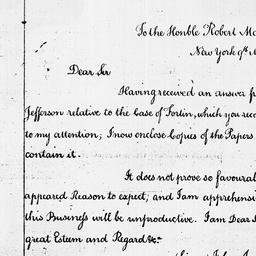 To the Honble Robert Mo
New York 9th
Dear Sir
Having received an answer f
Jefferson relative to the Case of Fortin, which you reco
to my attention; I now enclose Copies of the Papers
contain it.
It does not prove so favoural
appeared Reason to expect; and I am apprehensi
this Business will be unproductive. I am Dear S
great Esteem and Regard &c.